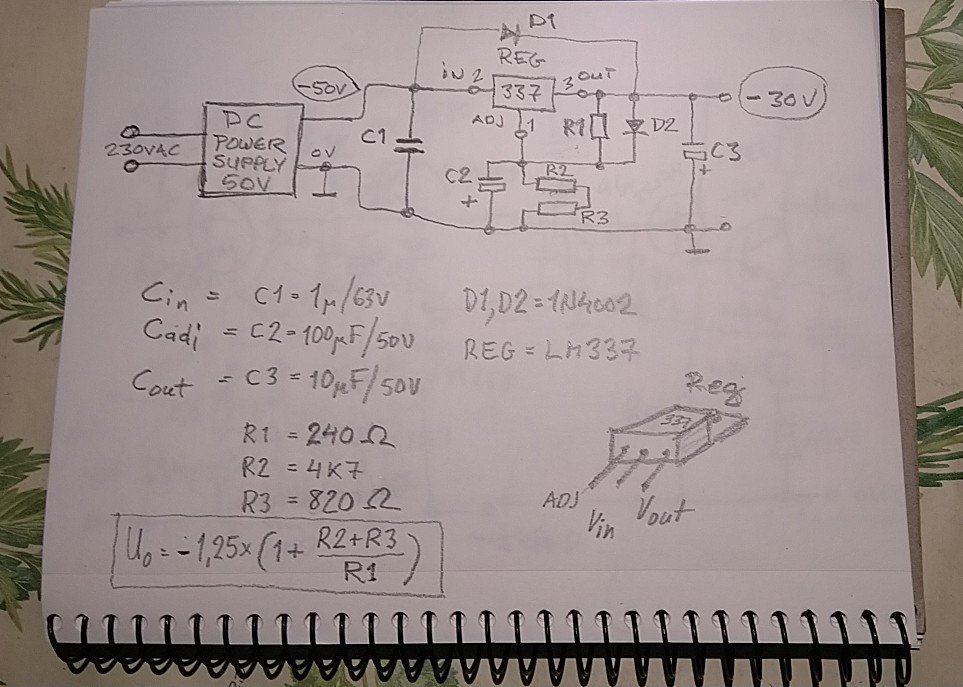 D1
REG
-50V
IN 2
337
3 OUT
-30V
DC
POWER
SUPPLY
50V
230VAC
0V
C1
ADJ 1
R1
D2
C2
+
R2
R3
C3
+
Cin = C1 = 1μ/63V
Cadj = C2 = 100μF/50V
Cout = C3 = 10μF/50V
D1, D2 = 1N4002
REG = LM337
R1 = 240 Ω
R2 = 4K7
R3 = 820 Ω
Uo = -1,25 x (1 + R2+R3 / R1)
Reg
337
ADJ
Vin
Vout